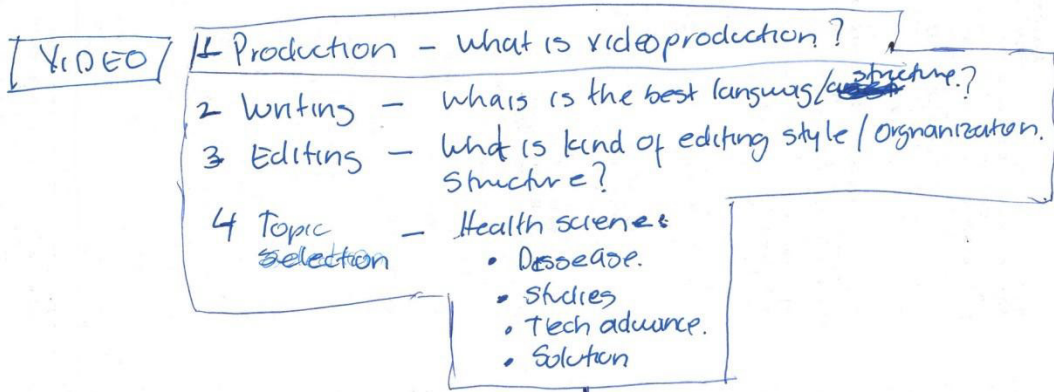 VIDEO
1 Production - What is videoproduction?
2 Writing - Whais is the best languag/ structure.?
3 Editing - What is kind of editing style / orgnanization.
structure?
4 Topic - Health science
selection
• Dessease.
• Studies
• Tech advance.
• Solution